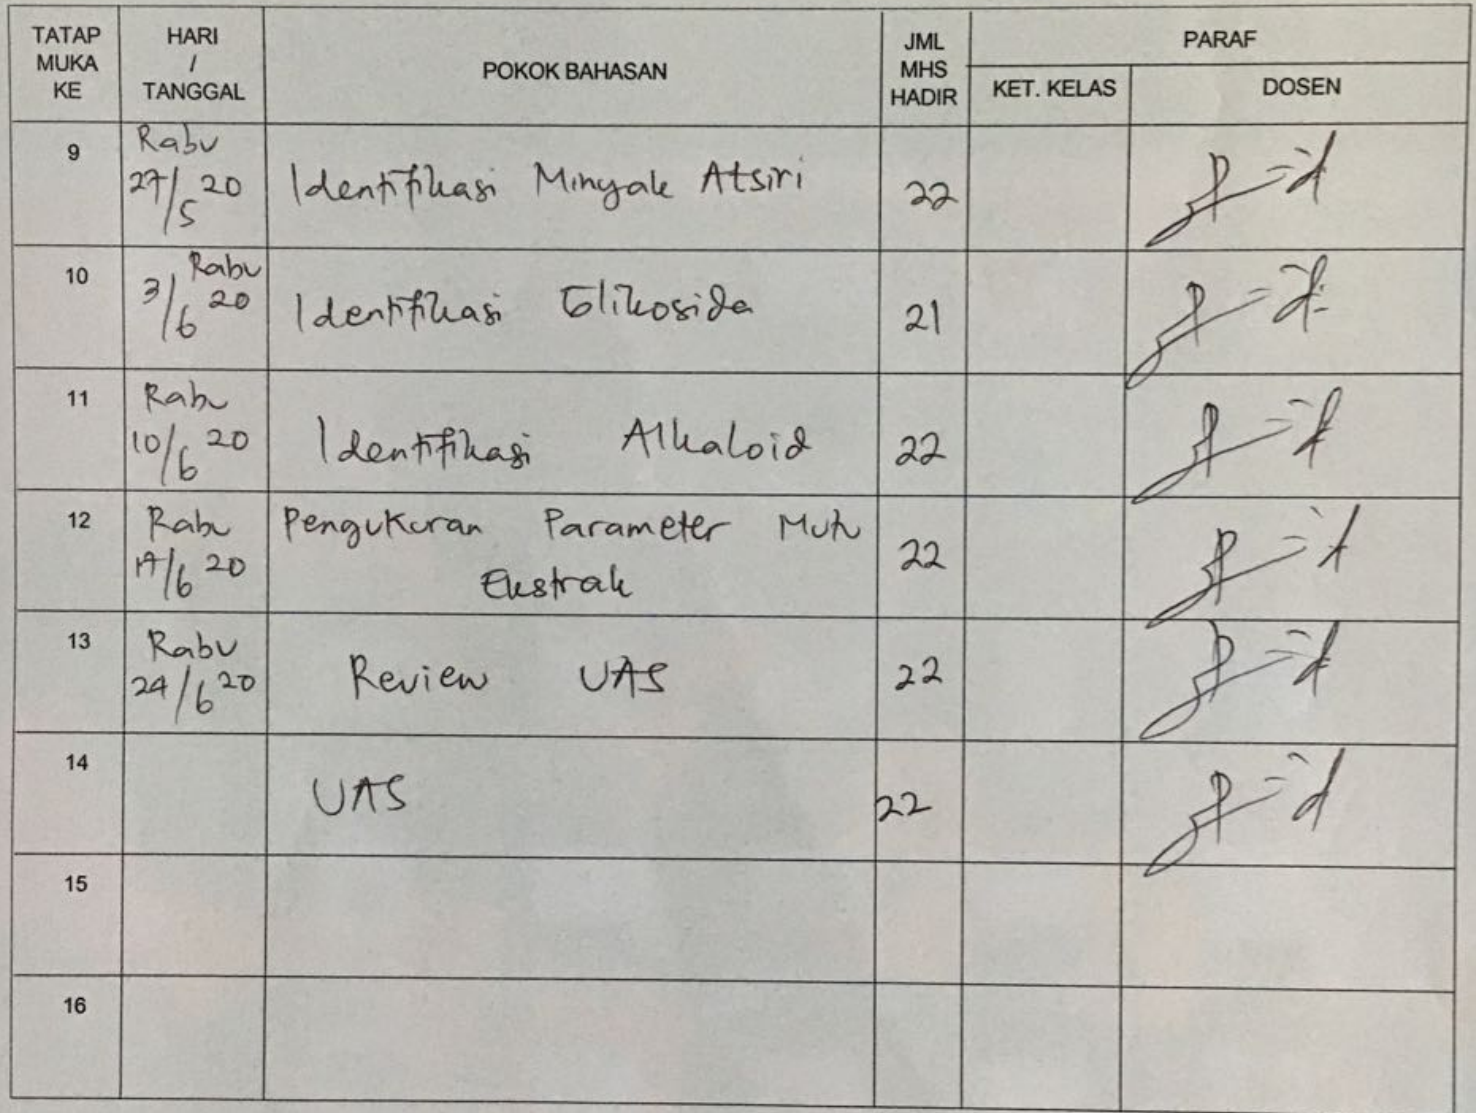 TATAP MUKA KE
HARI / TANGGAL
POKOK BAHASAN
JML MHS HADIR
PARAF
KET. KELAS
DOSEN
9
Rabu
27/5 20
Identifikasi Minyak Atsiri
22
10
Rabu
3/6 20
Identifikasi Glikosida
21
11
Rabu
10/6 20
Identifikasi Alkaloid
22
12
Rabu
17/6 20
Pengukuran Parameter Mutu
Ekstrak
22
13
Rabu
24/6 20
Review UAS
22
14
UAS
22
15
16